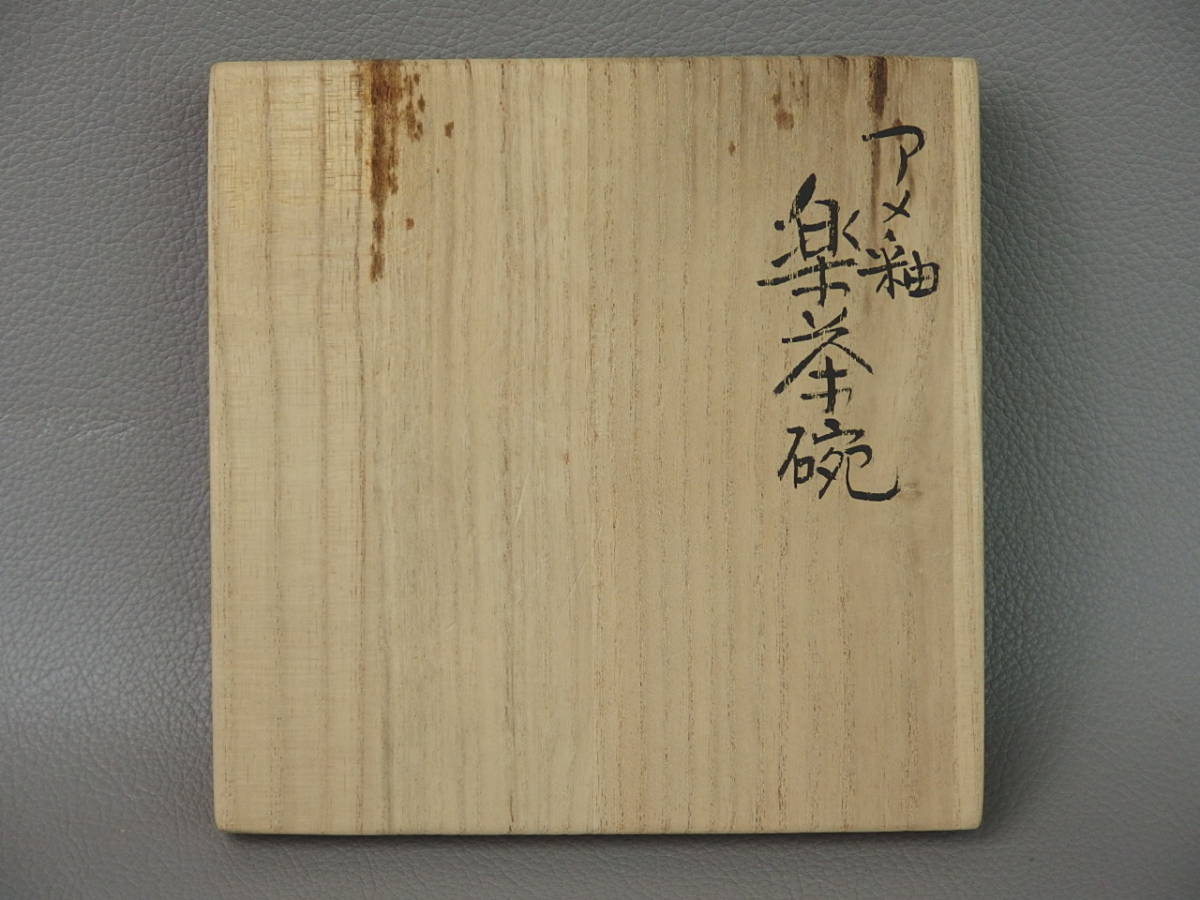 アメ釉
楽茶碗